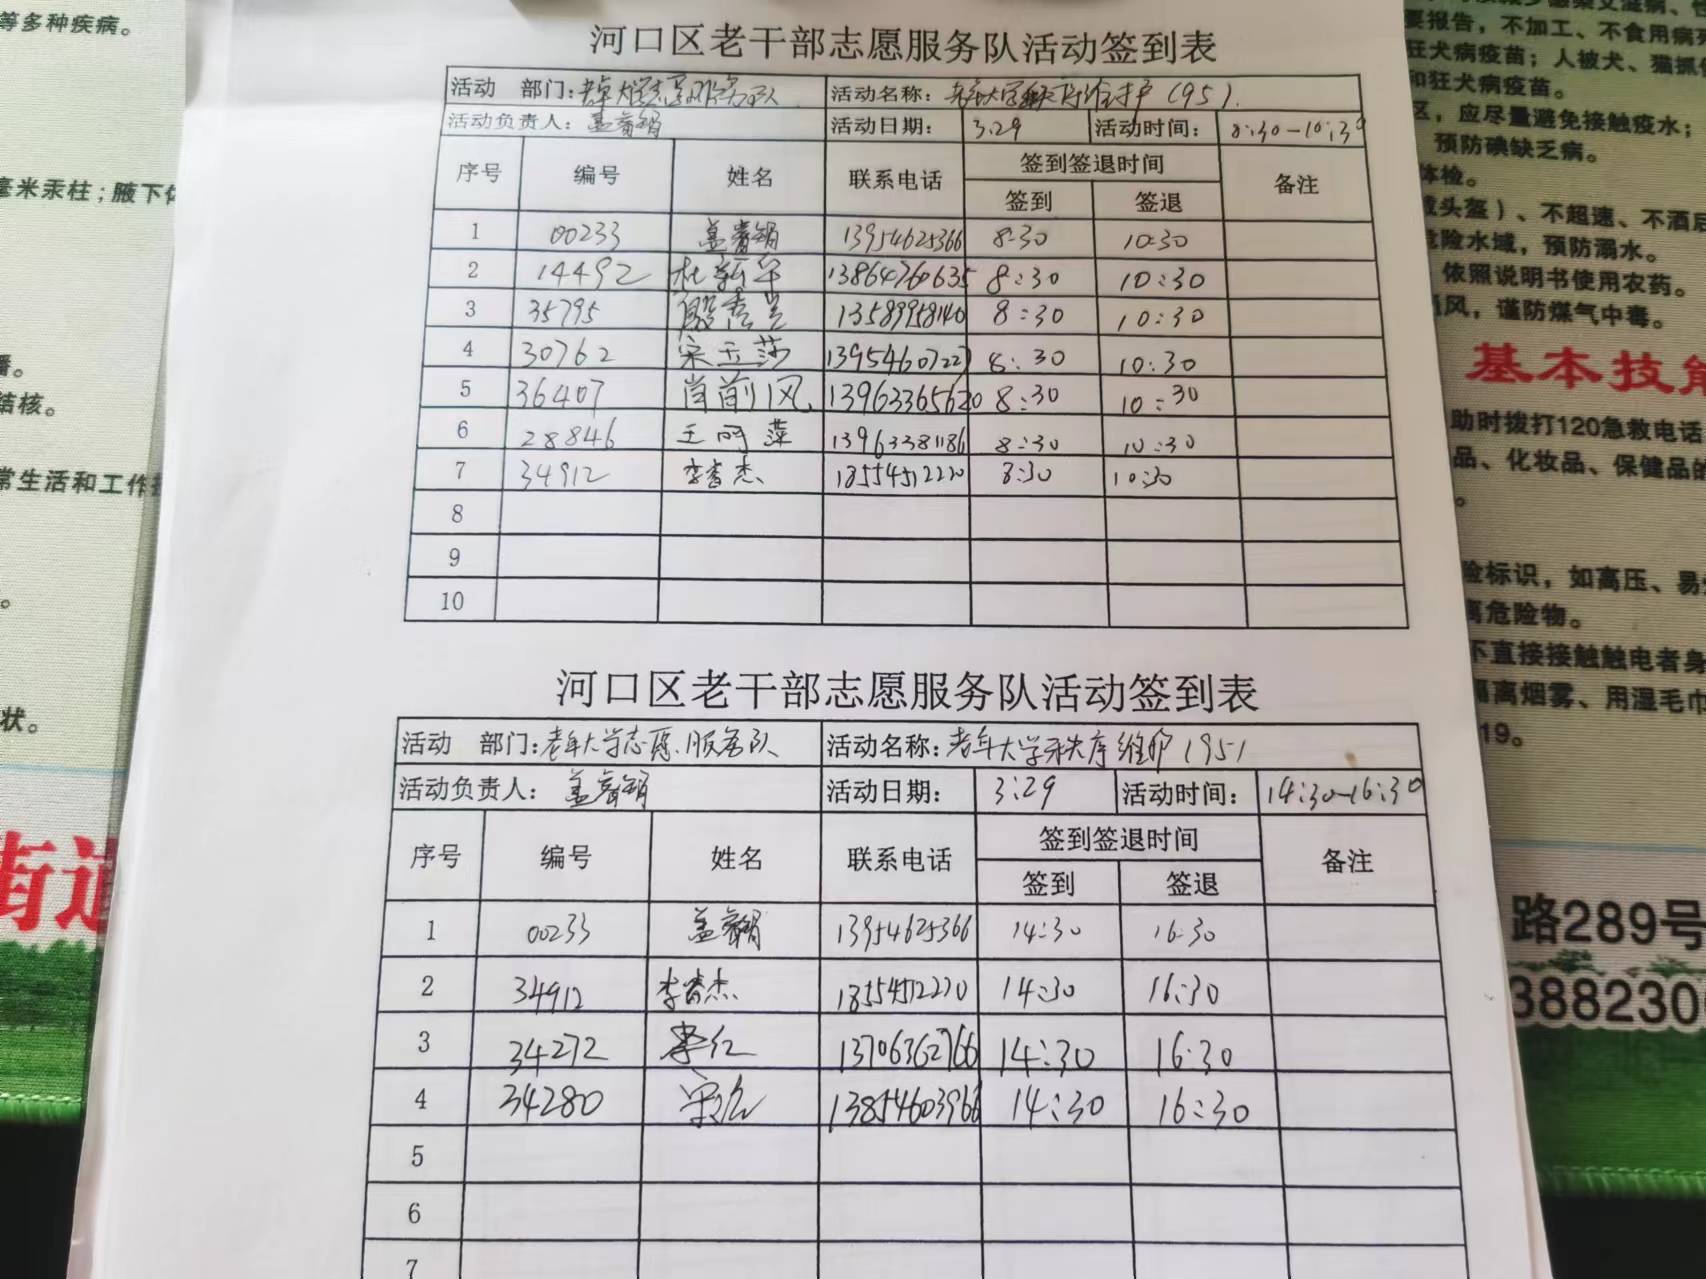 等多种疾病。
毫米汞柱；腋下体
播。
结核。
常生活和工作
。
状。
街道
河口区老干部志愿服务队活动签到表
活动 部门：老年大学志愿服务队 活动名称：老年大学 秩序维护（95）
活动负责人： 活动日期： 3.29 活动时间： 8:30-10:30
序号 编号 姓名 联系电话 签到签退时间 备注
签到 签退
1 00233 13954625366 8:30 10:30
2 14492 杜新华 13864760635 8:30 10:30
3 35795 殷秀兰 13589958140 8:30 10:30
4 30762 宋玉萍 13954607227 8:30 10:30
5 36407 肖前风 13963365620 8:30 10:30
6 28846 王丽萍 13963381186 8:30 10:30
7 34912 李春杰 18554512220 8:30 10:30
8
9
10
河口区老干部志愿服务队活动签到表
活动 部门：老年大学志愿服务队 活动名称：老年大学秩序维护（95）
活动负责人： 活动日期： 3:29 活动时间： 14:30-16:30
序号 编号 姓名 联系电话 签到签退时间 备注
签到 签退
1 00233 13954625366 14:30 16:30
2 34912 李春杰 18554512220 14:30 16:30
3 34272 李红 13706362766 14:30 16:30
4 34280 13854603966 14:30 16:30
5
6
7
要报告，不加工、不食用病死
狂犬病疫苗；人被犬、猫抓
和狂犬病疫苗。
区，应尽量避免接触疫水；
预防碘缺乏病。
体检。
戴头盔）、不超速、不酒后
危险水域，预防溺水。
依照说明书使用农药。
通风，谨防煤气中毒。
基本技能
助时拨打120急救电话
品、化妆品、保健品的
。
险标识，如高压、易
离危险物。
不直接接触触电者身
隔离烟雾、用湿毛巾
19。
路289号
388230